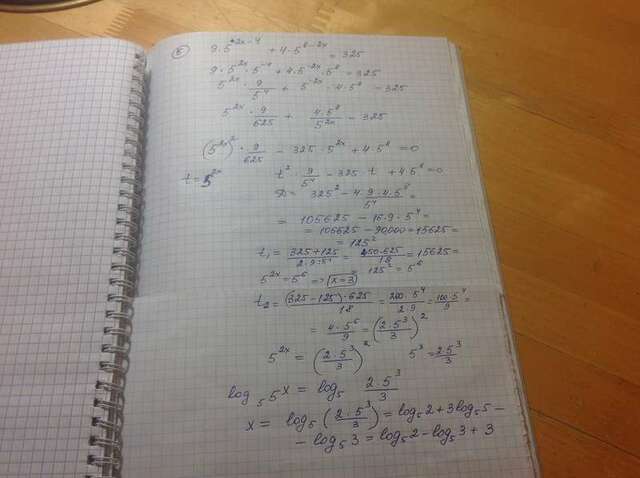 5) 9·5^(2x-4) + 4·5^(8-2x) = 325
9·5^(2x)·5^(-4) + 4·5^(-2x)·5^8 = 325
5^(2x)·9/5^4 + 5^(-2x)·4·5^8 = 325
5^(2x)·9/625 + 4·5^8/5^(2x) = 325
(5^(2x))^2·9/625 - 325·5^(2x) + 4·5^8 = 0
t = 5^(2x) t^2·9/5^4 - 325·t + 4·5^8 = 0
D = 325^2 - 4·9·4·5^8/5^4 =
= 105625 - 16·9·5^4 =
= 105625 - 90000 = 15625 =
= 125^2
t₁ = (325+125)/(2·9:5^4) = 450·625/18 = 15625 =
5^(2x) = 5^6 => x = 3 = 125^2 = 5^6
t₂ = (325-125)·625/18 = 200·5^4/(2·9) = 100·5^4/9 =
= 4·5^6/9 = (2·5^3/3)^2
5^(2x) = (2·5^3/3)^2 5^x = 2·5^3/3
log₅ 5^x = log₅ 2·5^3/3
x = log₅ (2·5^3/3) = log₅2 + 3log₅5 -
- log₅3 = log₅2 - log₅3 + 3